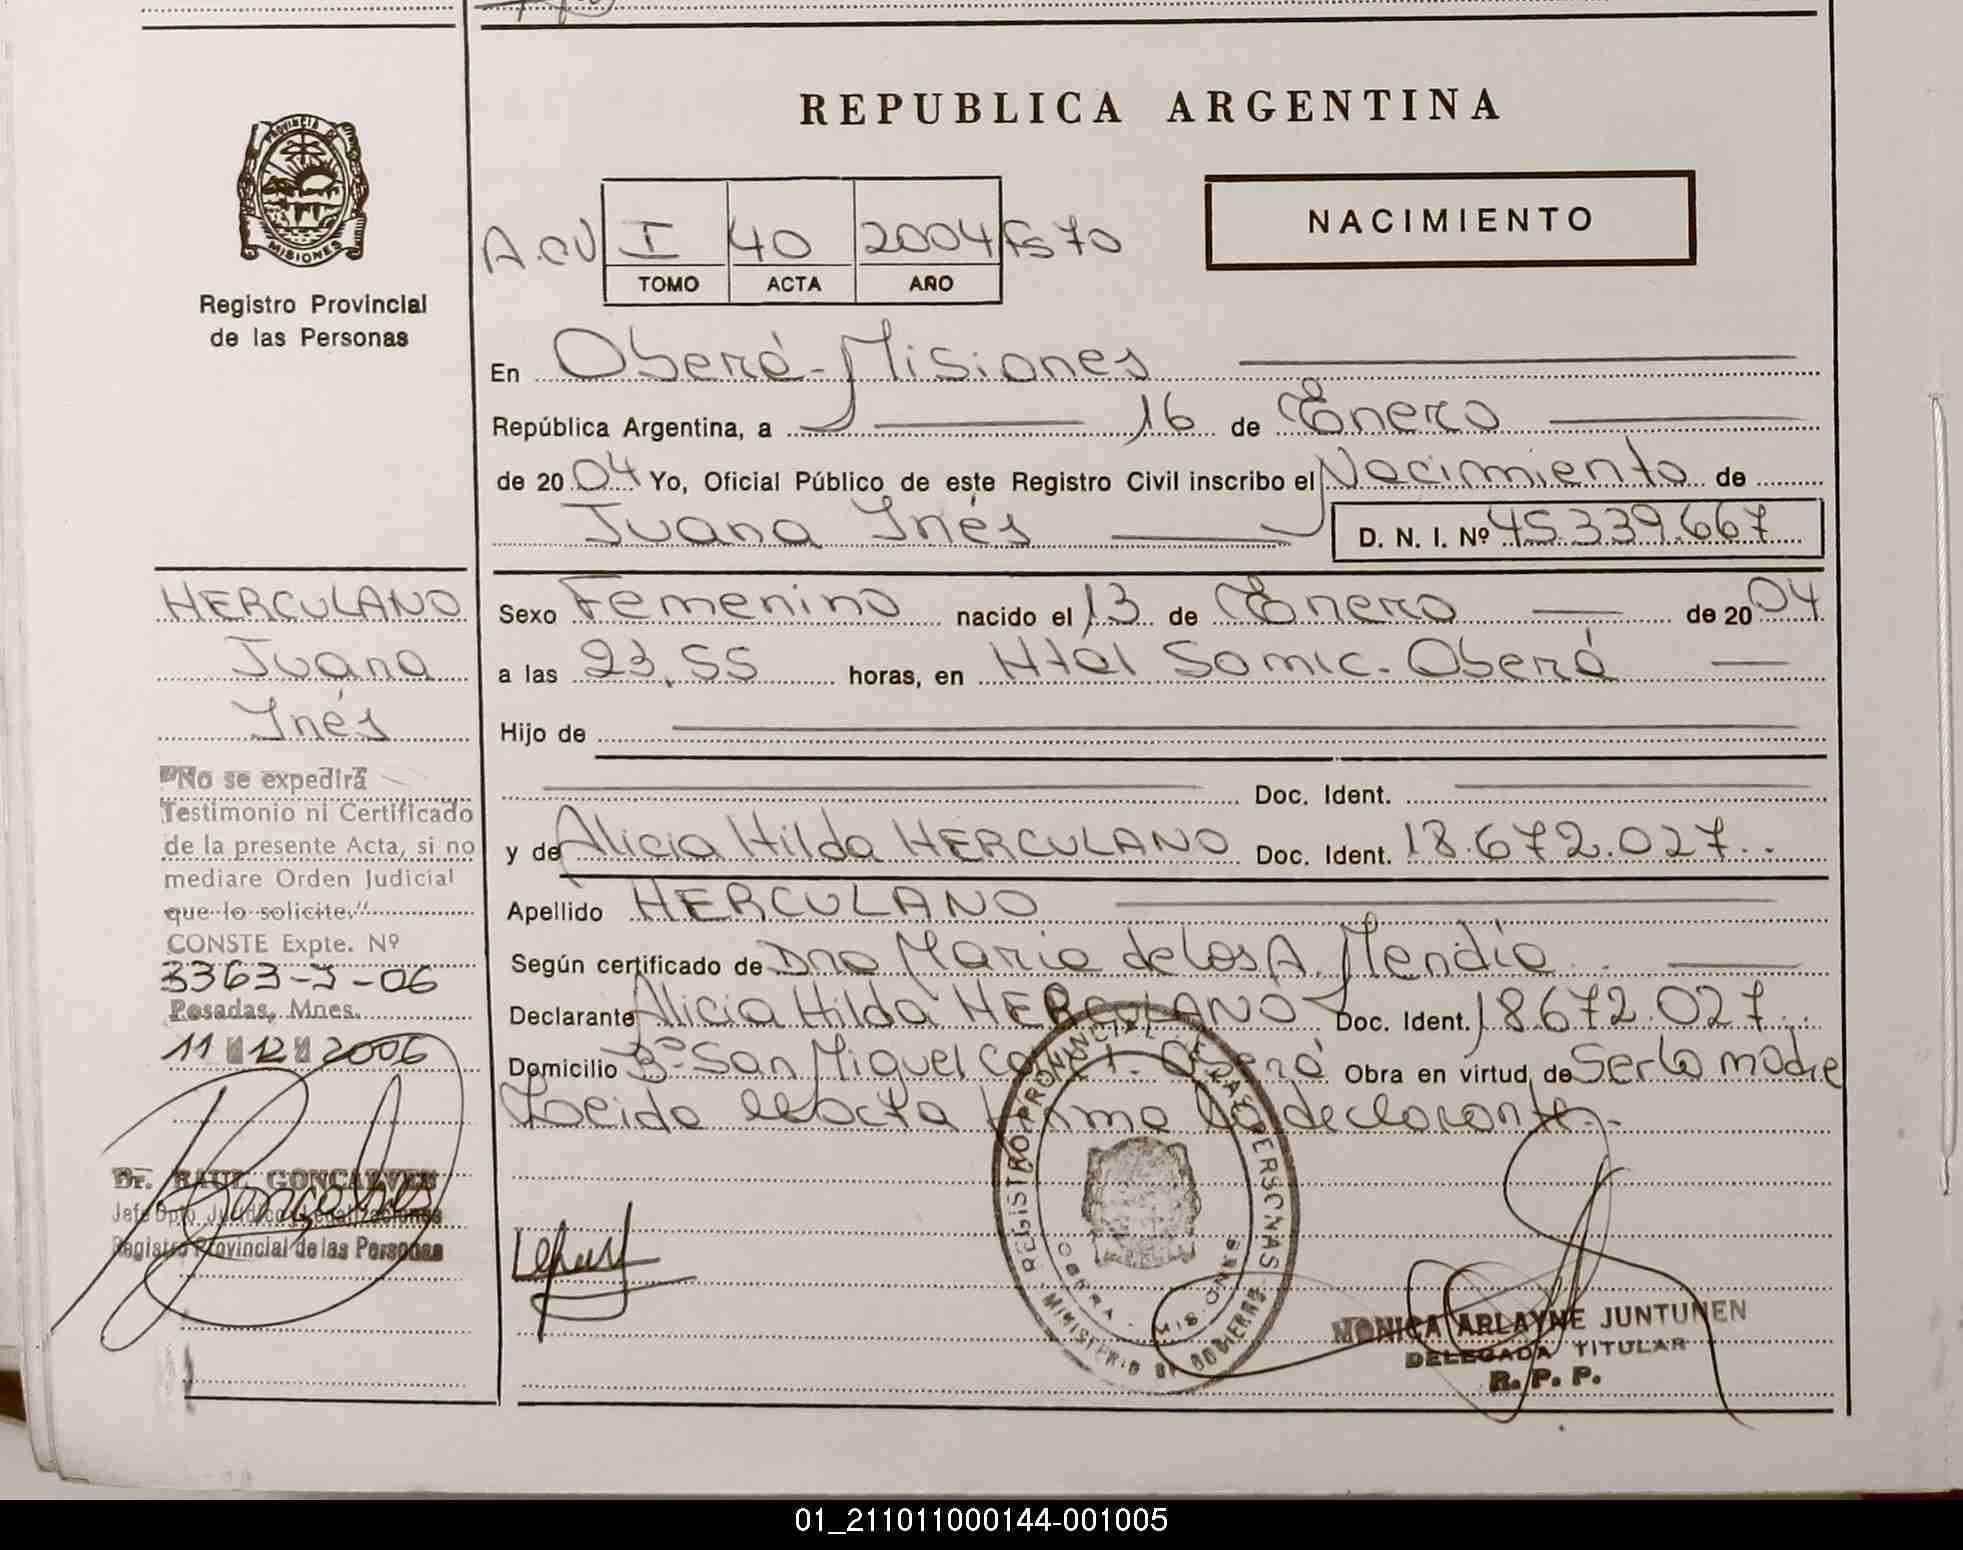 REPUBLICA ARGENTINA
PROVINCIA DE
MISIONES
Registro Provincial
de las Personas
A.CU I 40 2004 Fs 70
TOMO ACTA AÑO
NACIMIENTO
En Oberá-Misiones
República Argentina, a 16 de Enero
de 2004 Yo, Oficial Público de este Registro Civil inscribo el Nacimiento de
Juana Inés D. N. I. Nº 45.339.667
Sexo Femenino nacido el 13 de Enero de 2004
a las 23,55 horas, en Htal Samic-Oberá
Hijo de
Doc. Ident.
y de Alicia Hilda HERCULANO Doc. Ident. 18.672.027..
Apellido HERCULANO
Según certificado de Dra Maria de los A. Mendia
Declarante Alicia Hilda HERCULANO Doc. Ident. 18672.027..
Domicilio Bº San Miguel Oberá Obra en virtud de Ser la madre
Leida el acta firma la declarante.
HERCULANO
Juana
Inés
"No se expedirá
Testimonio ni Certificado
de la presente Acta, si no
mediare Orden Judicial
que lo solicite."
CONSTE Expte. Nº
3363-J-06
Posadas, Mnes.
11 12 2006
Dr. RAUL GONCALVES
Jefe Dpto. Jurídico y Legalizaciones
Registro Provincial de las Personas
REGISTRO PROVINCIAL DE LAS PERSONAS
OBERA - MISIONES
MINISTERIO DE GOBIERNO
MONICA ARLAYNE JUNTUNEN
DELEGADA TITULAR
R. P. P.
01_211011000144-001005